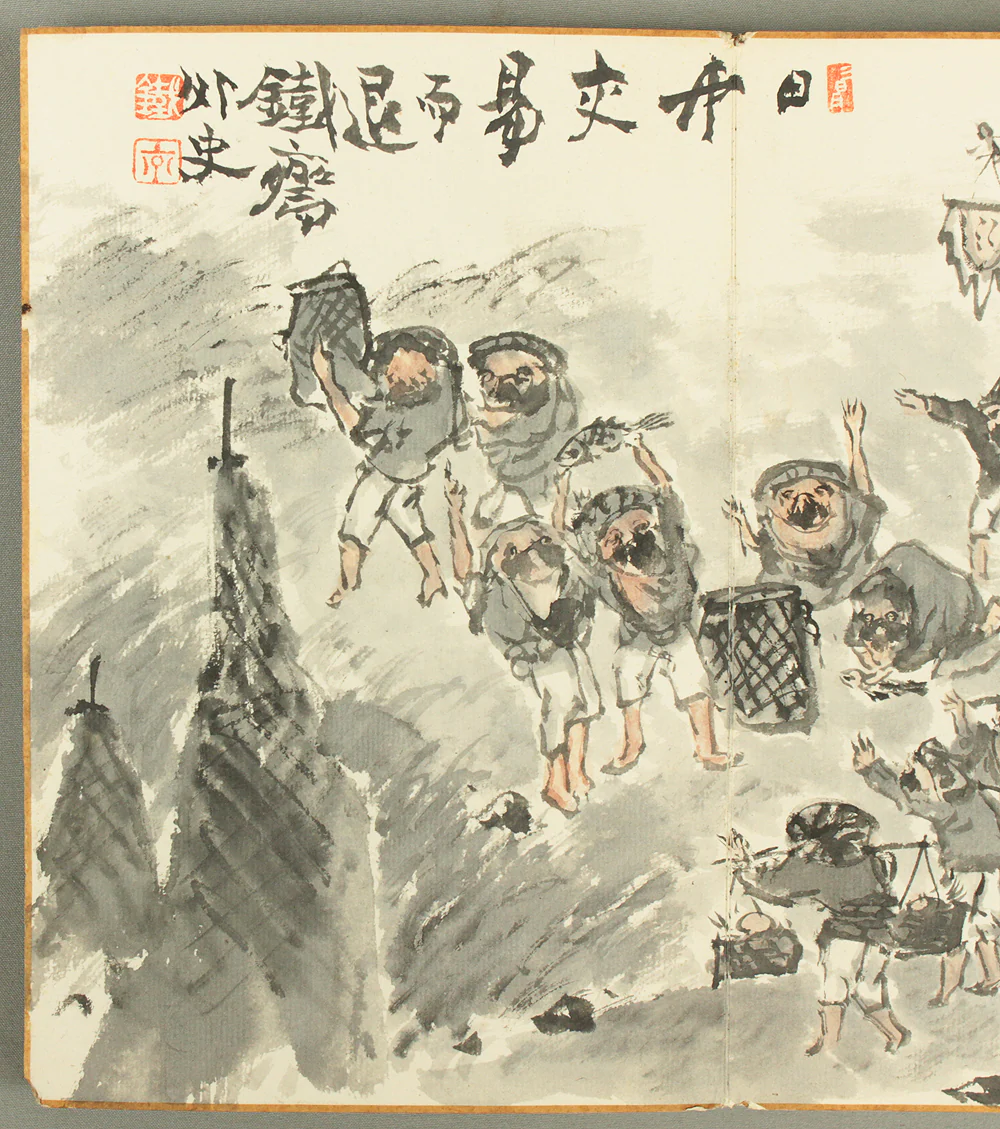 日交易而退
鐵齋
外史